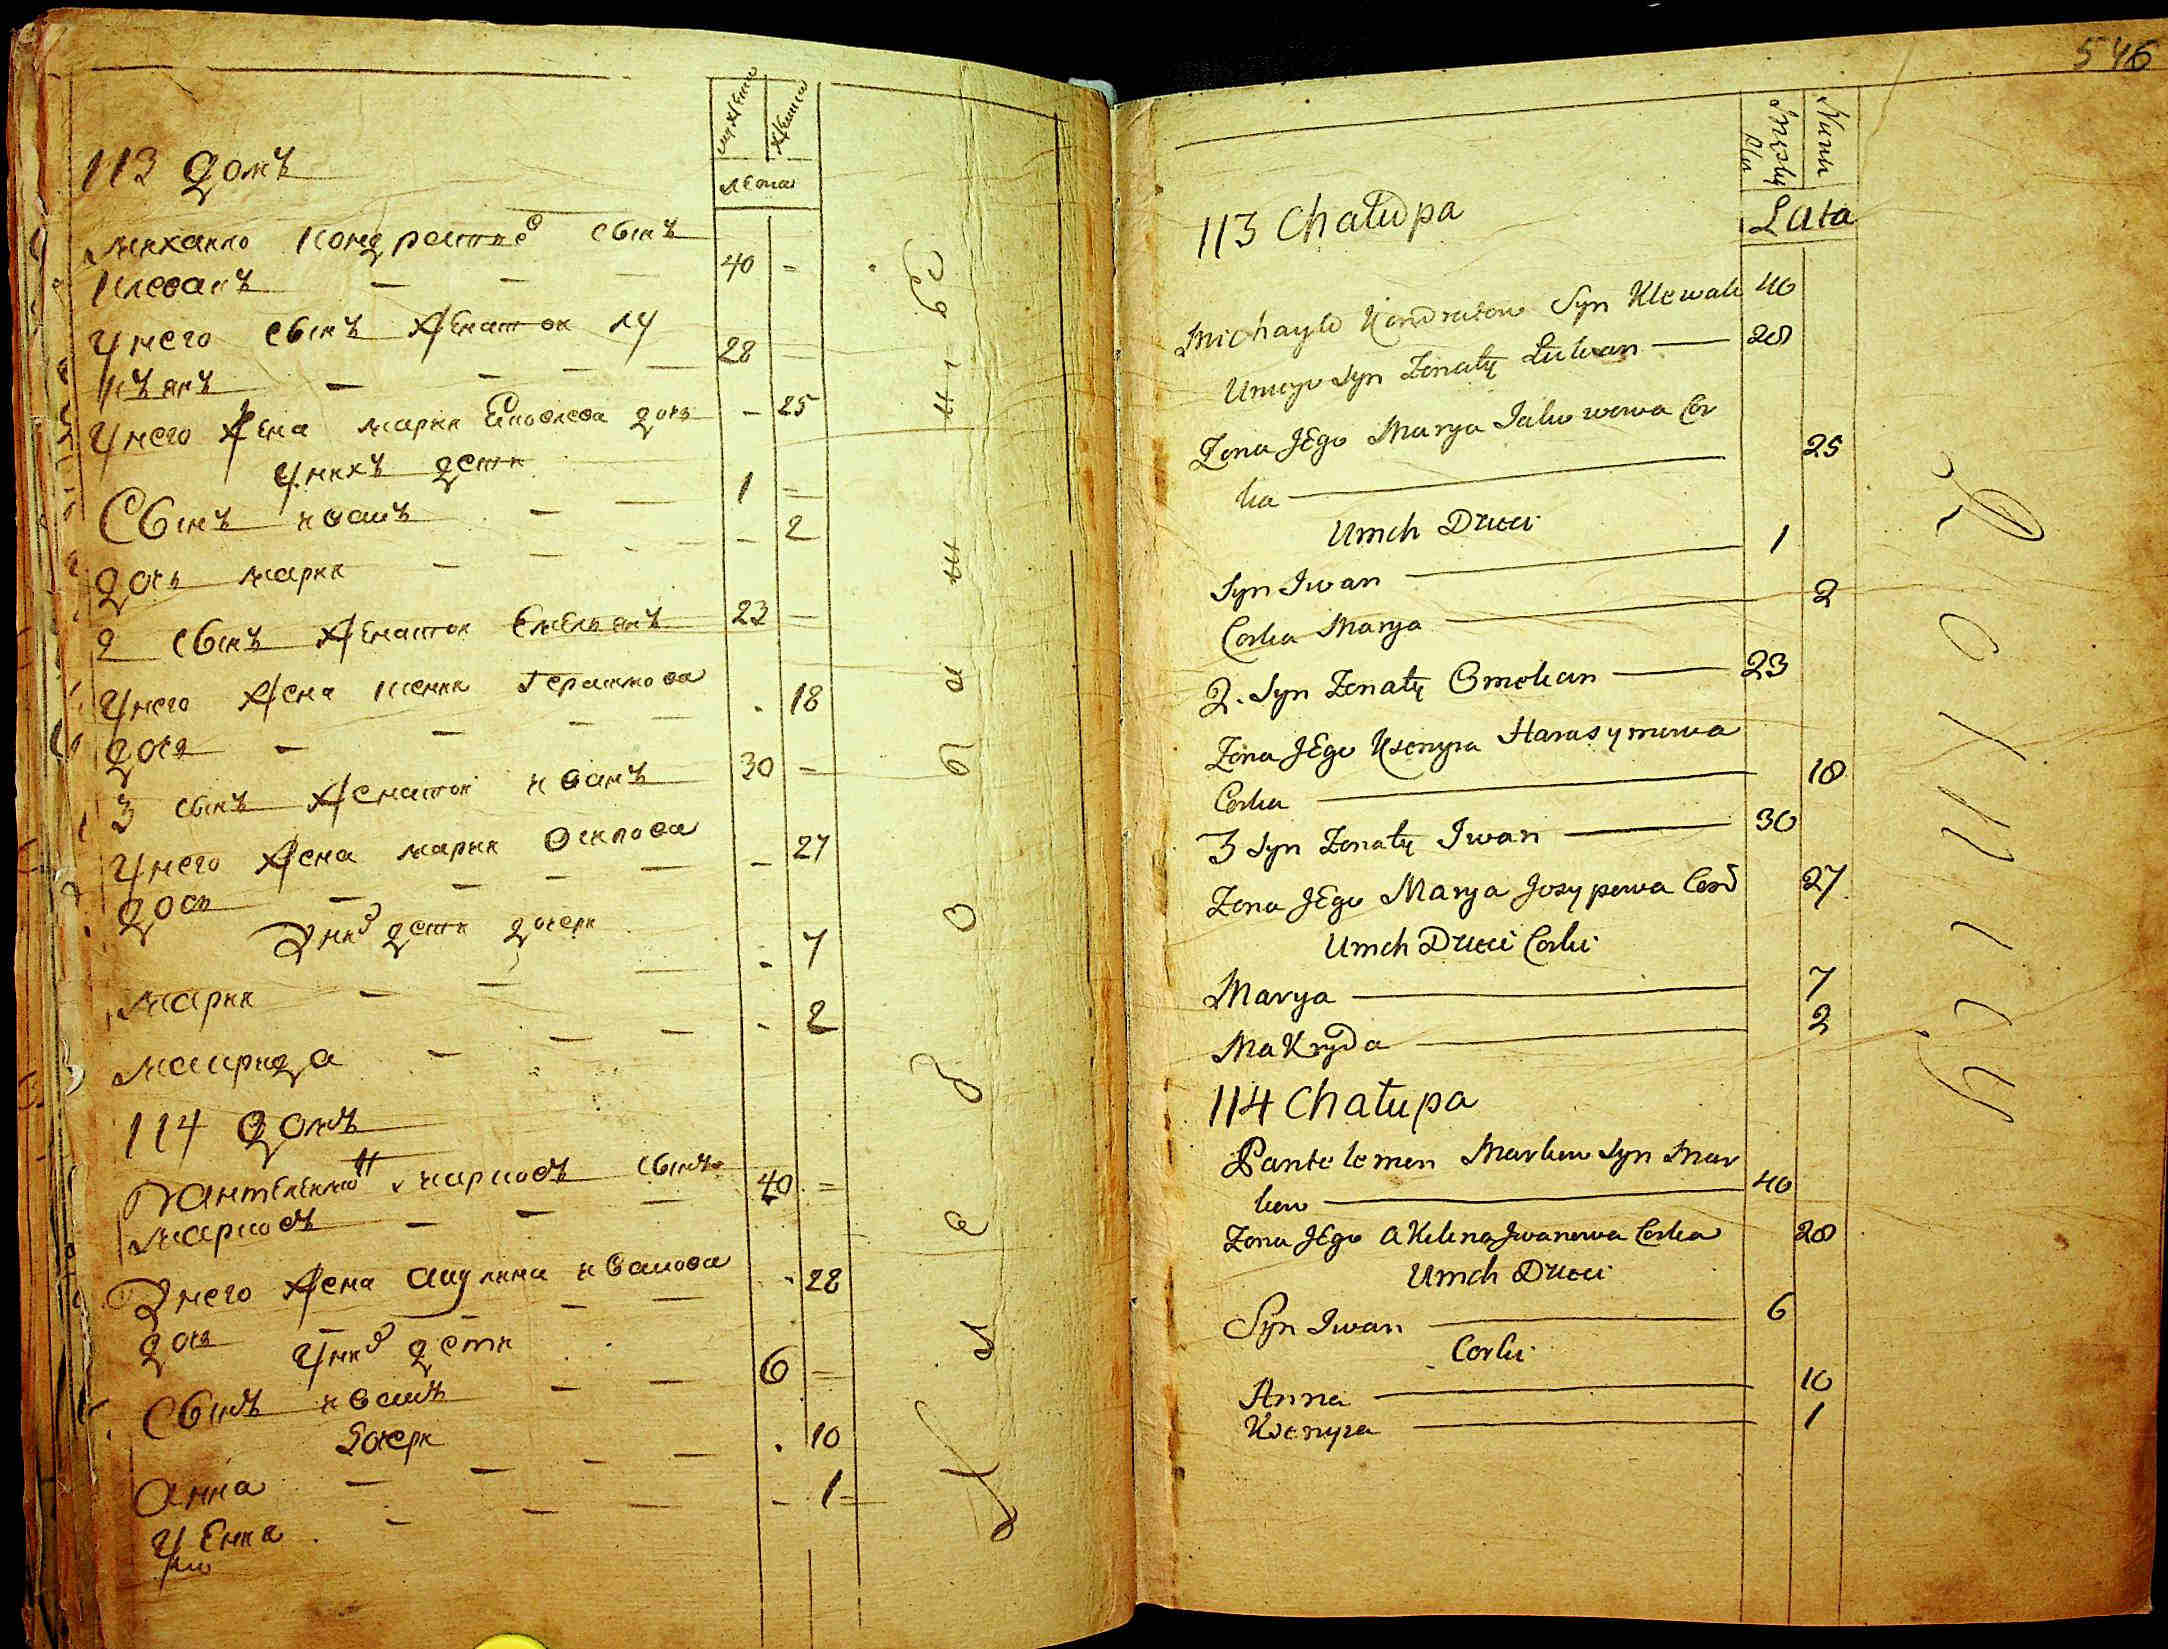 мужеска
женска
лета
113 домъ
михаило кондратиев сынъ
клеванъ 40
у него сынъ женатои лу
кьянъ 28
у него жена мария Яковлева дочь 25
у нихъ дети
Сынъ иванъ 1
дочь мария 2
2 сынъ женатои Емельянъ 23
у него жена ксения Герасимова
дочь 18
3 сынъ женатои иванъ 30
у него жена мария осипова
дочь 27
У них дети дочери
мария 7
макрида 2
114 домъ
Пантелеимон марковъ сынъ
марковъ 40
У него жена акулина иванова
дочь 28
у них дети
Сынъ иванъ 6
Дочери
Анна 10
1
546
Męska
Płci
Lata
113 Chałupa
Michayło Kondratow Syn Klewan 40
Unieyo Syn Żonaty Łukian 28
Żona JEgo Marya Jakowowa Cor
ka 25
Unich Dzieci
Syn Iwan 1
Corka Marya 2
2. Syn Żonaty Omelian 23
Żona JEgo Ksenyia Harasymowa
Corka 18
3 Syn Żonaty Iwan 30
Żona JEgo Marya Josypowa Cor 27
Unich Dzieci Corki
Marya 7
MaKryda 2
114 Chałupa
Pantelemon Markow Syn Mar
kow 40
Żona JEgo AKilina Jwanowa Corka 28
Unich Dzieci
Syn Iwan 6
Corki
Anna 10
Ksenyia 1